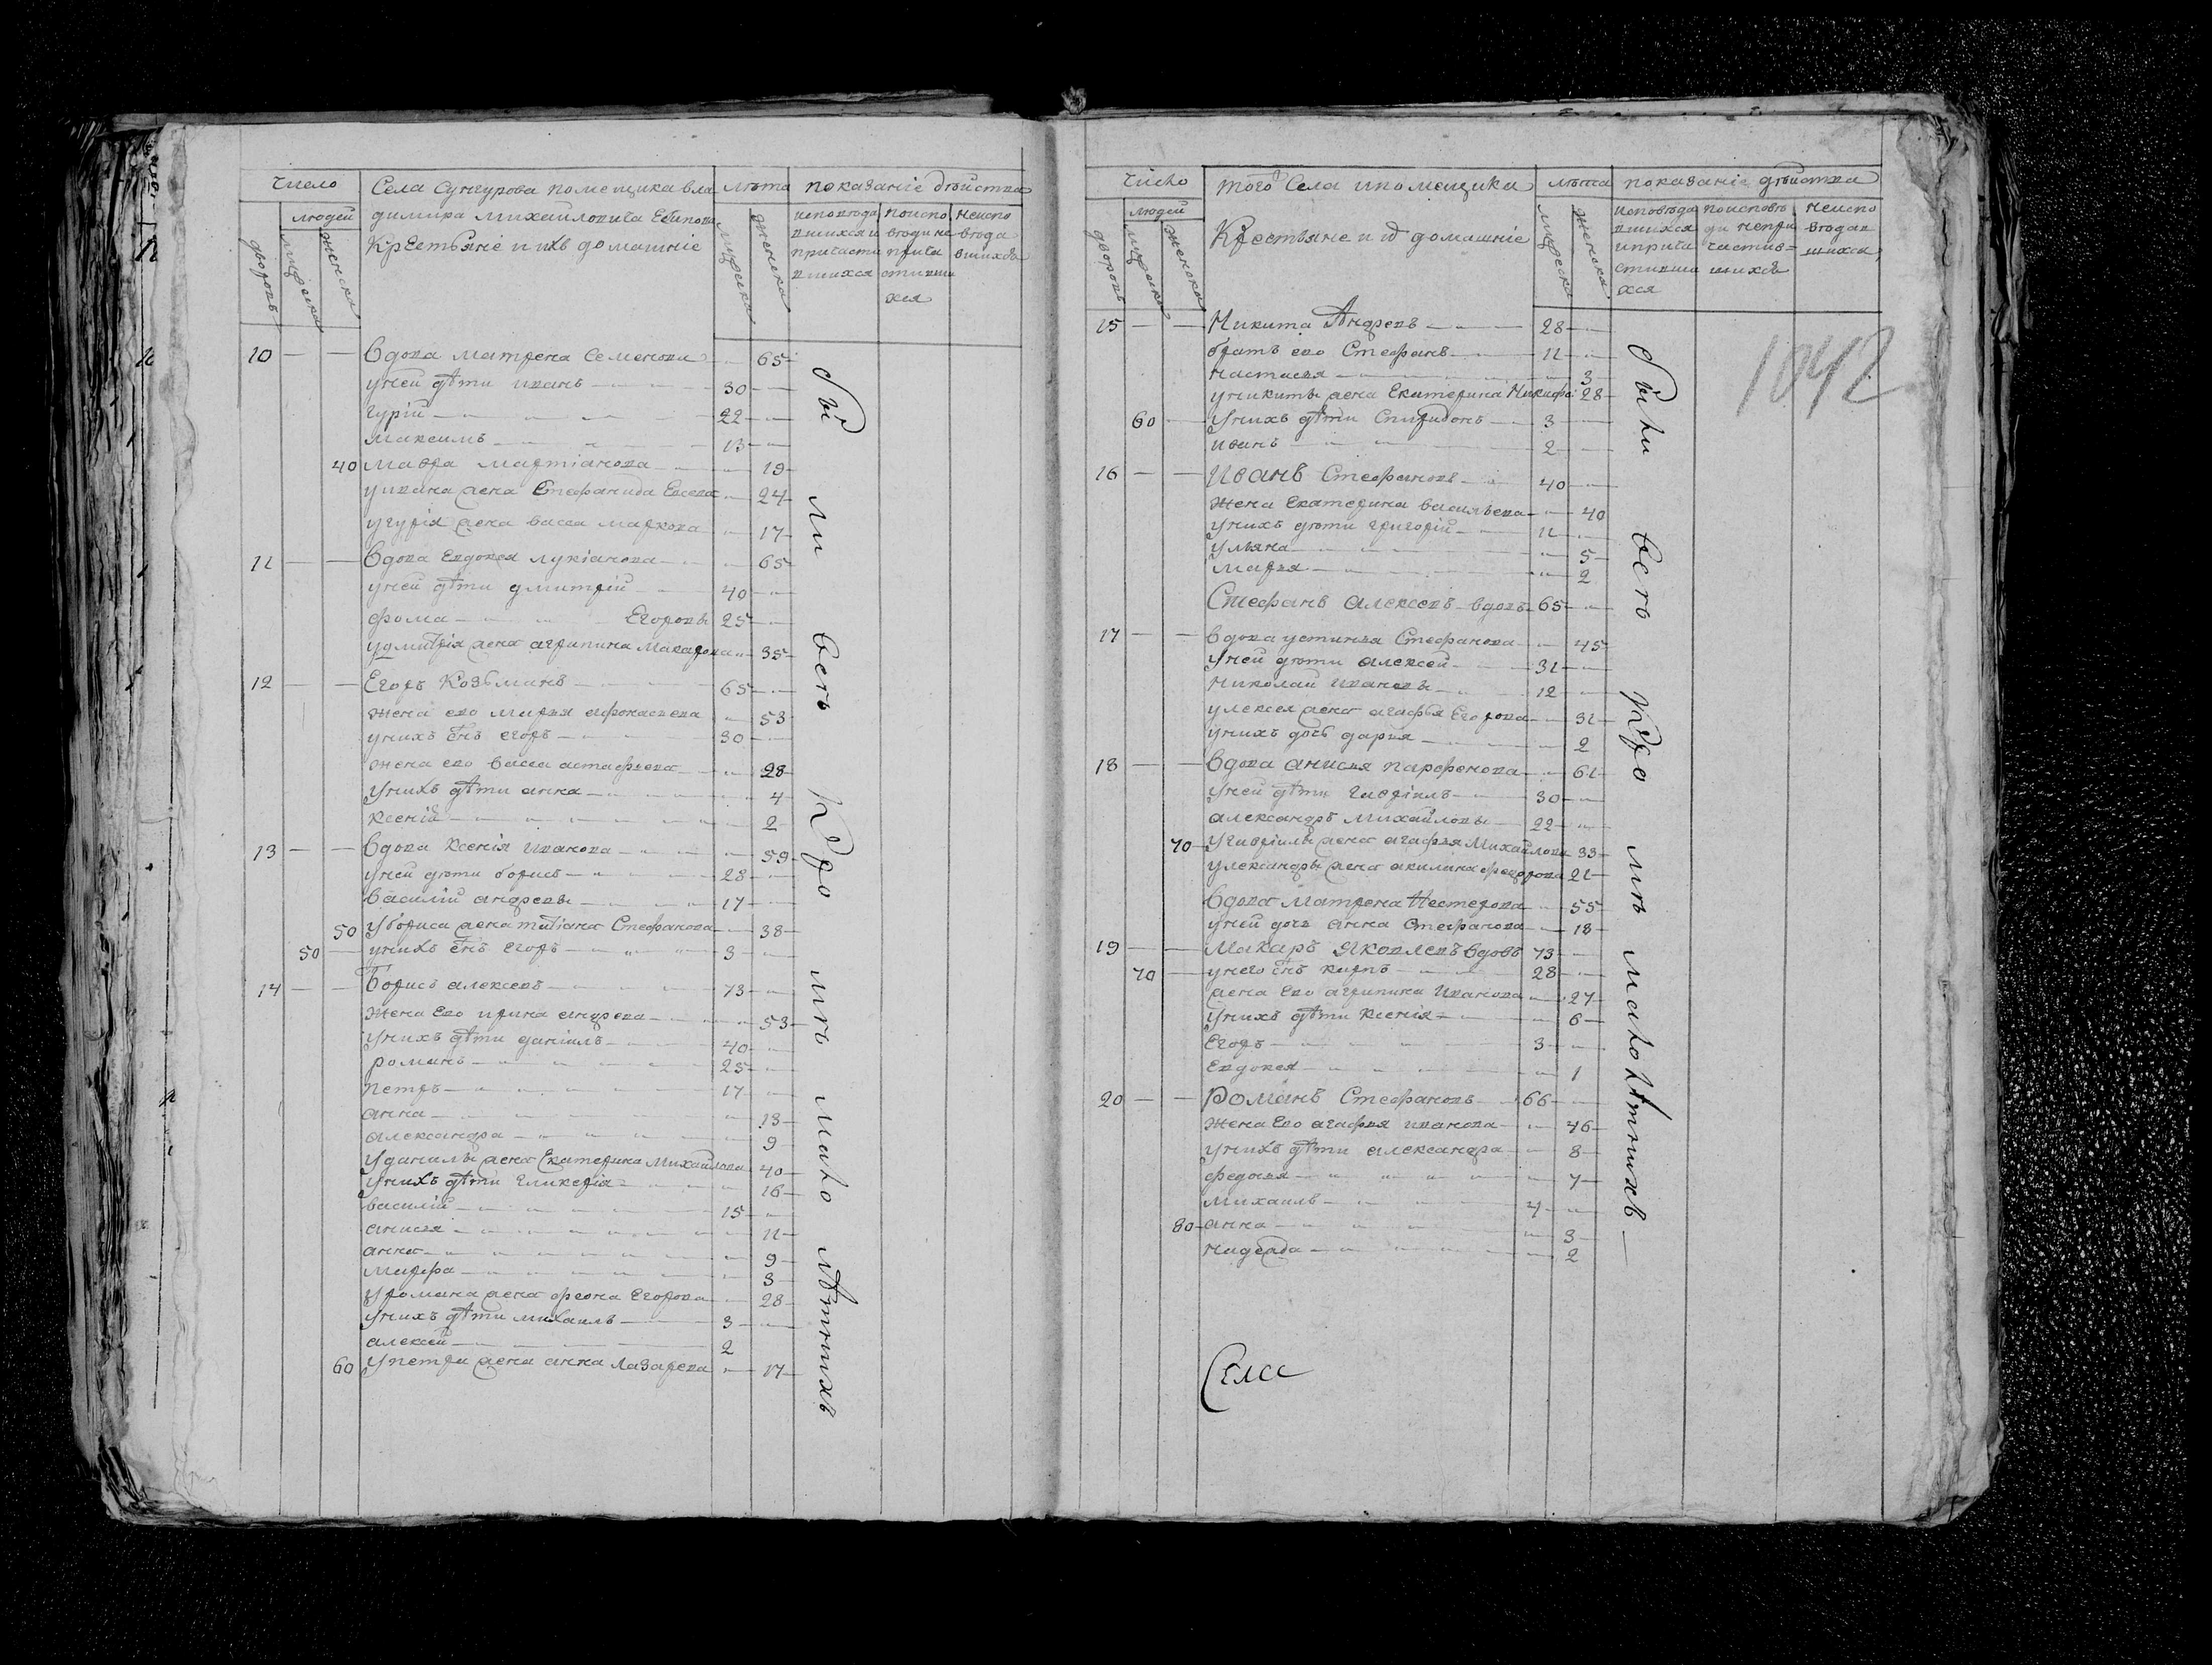 Число
Села Сунгурова помещика вла
димира Михайловича
Крестьяне и ихъ домашніе
лѣта
показаніе дѣйства
людей
дворовъ
мужеска
женска
мужеска
женска
исповѣда
вшихся и
причасти
вшихся
поиспо
вѣди не
прича
стивши
хся
неиспо
вѣда
вшихся
10 вдова матрена Семенова 65
у ней дѣти иванъ 30
гурій 22
максимъ 13
40 мавра мартіанова 19
у ивана жена Стефанида 24
у гурія жена васса маркова 17
11 вдова Евдокея лукіанова 65
у ней дѣти дмитрій 40
фома Егоровы 25
у дмитрія жена агрипина Макарова 35
12 Егоръ Козьминъ 65
жена ево марья афонасьева 53
у нихъ сынъ егоръ 30
жена ево васса астафьева 28
у нихъ дѣти анна 4
ксенія 2
13 вдова ксенія иванова 59
у ней дѣти борисъ 28
василій андреевы 17
50 у бориса жена татіана Стефанова 38
50 у нихъ сынъ егоръ 3
14 борисъ алексеевъ 73
жена ево ирина андреева 53
у нихъ дѣти даніилъ 40
романъ 25
петръ 17
анна 13
александра 9
у данилы жена Екатерина Михайлова 40
у нихъ дѣти гликерія 16
василій 15
анисья 11
анна 9
марфа 3
у романа жена феона Егорова 28
у нихъ дѣти михаилъ 3
алексей 2
60 у петра жена анна лазарева 17
бы ли всѣ кро мѣ мало лѣтнихъ
Число
того Села и помещика
Крестьяне и ихъ домашніе
лѣта
показаніе дѣйства
людей
дворовъ
мужеска
женска
мужеска
женска
исповѣда
вшихся
и прича
стивши
хся
по исповѣ
ди непри
частив=
шихся
неиспо
вѣдав
шихся
1042
15 Никита Андреевъ 28
братъ ево Стефанъ 11
настасья 3
у никиты жена Екатерина Никифо: 28
60 у нихъ дѣти Спиридонъ 3
иванъ 2
16 Иванъ Стефановъ 40
жена Екатерина васильева 40
у нихъ дѣти григорій 11
ульяна 5
марья 2
Стефанъ алексеевъ вдовъ 65
17 вдова устинья Стефанова 45
у ней дѣти алексей 31
Николай ивановы 12
у лексея жена агафья Егорова 31
у нихъ дочь дарья 2
18 вдова анисья парфенова 61
у ней дѣти гавріилъ 30
александръ михайловы 22
70 у гавріилы жена агафья Михайлова 33
у лександры жена акилина федорова 21
вдова матрена Нестерова 55
у ней дочь анна Стефанова 18
19 макаръ яковлевъ вдовъ 73
70 у него сынъ карпъ 28
жена Ево агрипина иванова 27
у нихъ дѣти ксенія 6
егоръ 3
евдокея 1
20 Романъ Стефановъ 66
жена Ево агафья иванова 46
у нихъ дѣти александра 8
федосья 7
михаилъ 4
80 анна 3
надежда 2
были всѣ кро мѣ малолѣтнихъ
Села